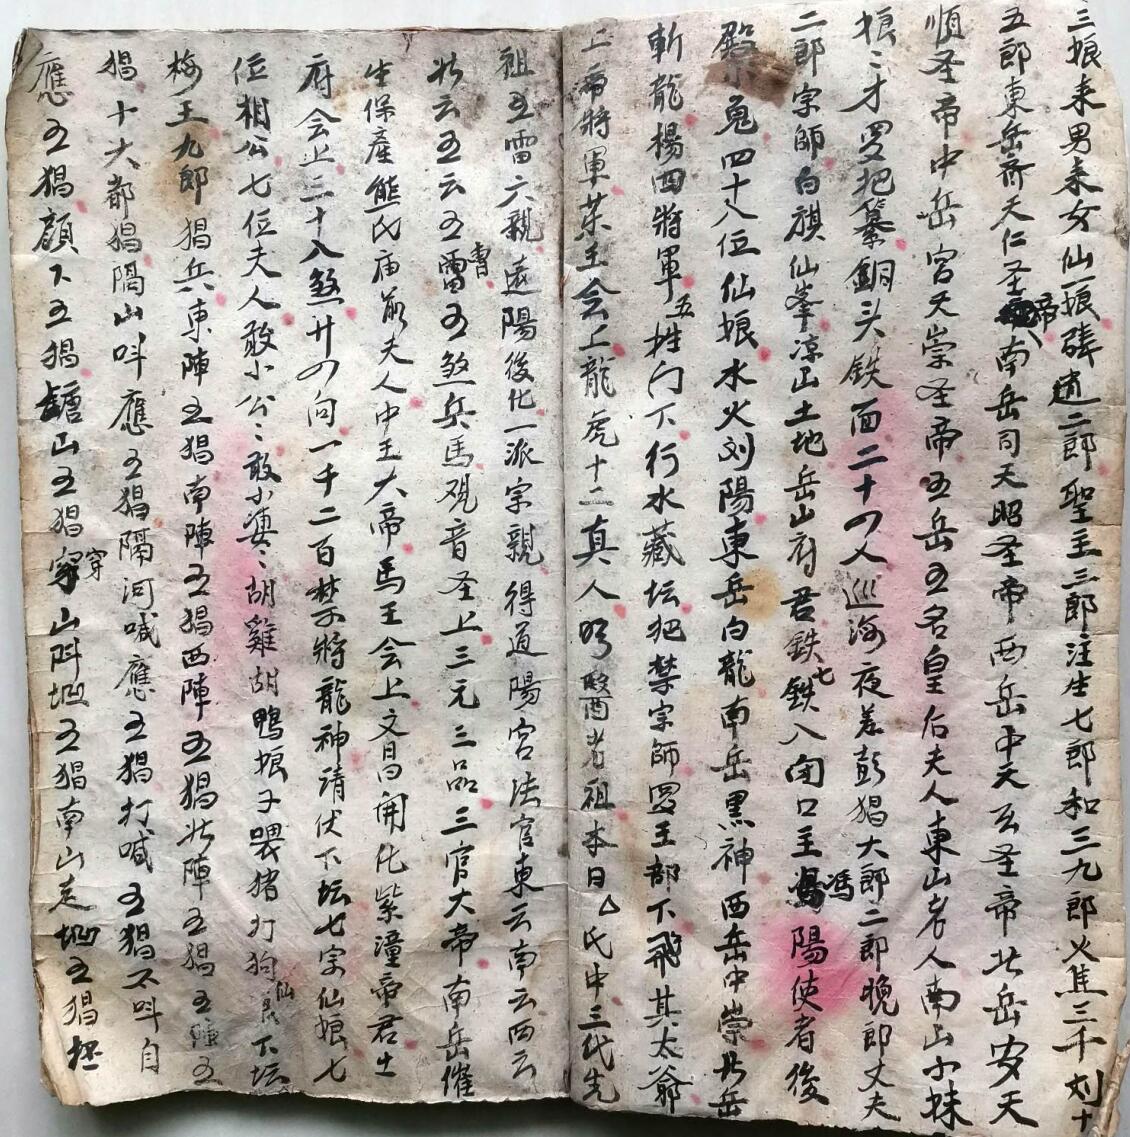 三娘来男来女仙一娘磷逍二郎聖主三郎注生七郎和三九郎火焦三千刘十
五郎東岳齐天仁圣帝南岳司天昭圣帝西岳中天玄圣帝北岳安天
順圣帝中岳宫天崇圣帝五岳五名皇后夫人東山老人南山小妹
娘二才罗把纂銅头铁面二十四人巡海夜差彭猖大郎二郎晚郎丈夫
二郎宗師白旗仙峯凉山土地岳山府君铁七铁八闭口王馮陽使者後
槃鬼四十八位仙娘水火刘陽東岳白龍南岳黑神西岳中崇北岳
斬龍楊四將軍五姓门下行水藏坛把禁宗師罗王部下飛其太爺
上帝將軍茶王会上龍虎十二真人醫老祖本日厶氏中三代先
祖五雷六親遠陽後化一派宗親得道陽宫法官東云南云西云
北云五云五雷五煞兵馬观音圣上三元三品三官大帝南岳催
生保產熊氏庙前夫人中王大帝馬王会上文昌開化紫潼帝君士
府会上三十八煞廿四向一千二百禁將龍神请伏下坛七宗仙娘七
位相公七位夫人敢小公公敢小婆婆胡雞胡鴨娘子喂猪打狗仙下坛
梅王九郎猖兵東陣五猖南陣五猖西陣五猖北陣五猖五陣五
猖十大都猖隔山呌應五猖隔河喊應五猖打喊五猖不呌自
應五猖顛下五猖山五猖穿山斟坳五猖南山走坳五猖